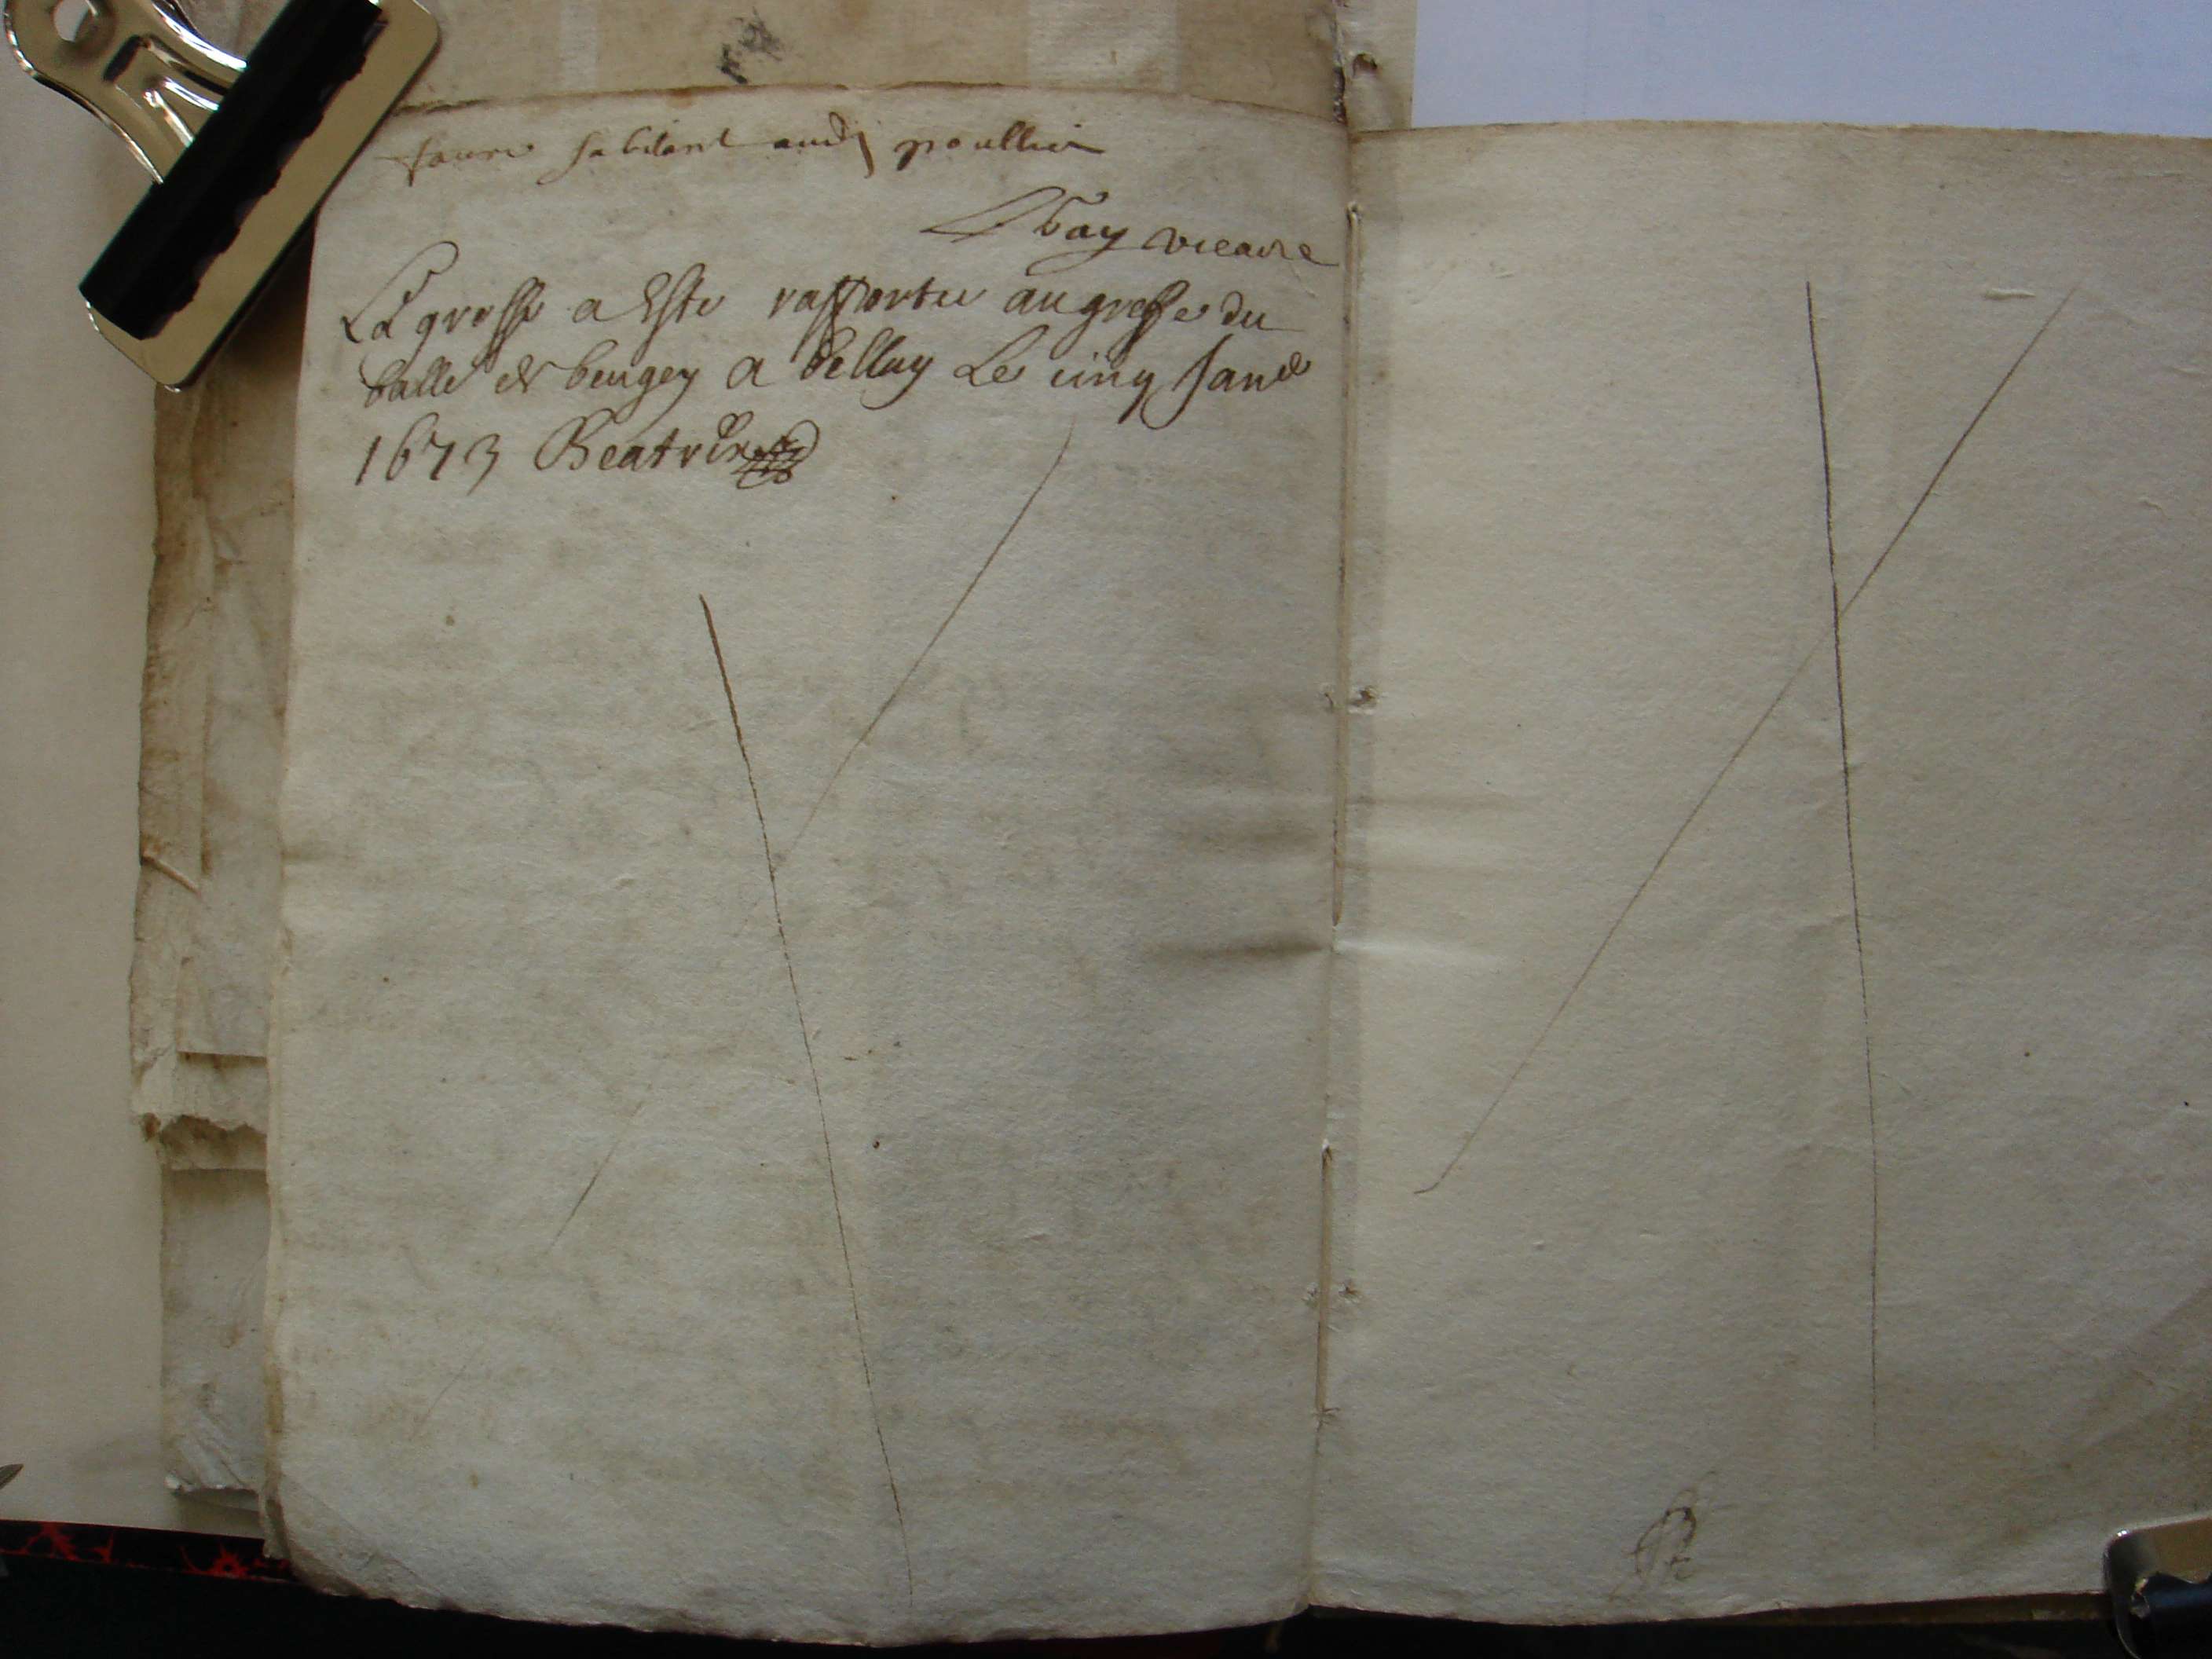 faure habitant aud poullieu
Bay vicaire
La grosse a Esté rapportee au greffe du
balle de beugey a bellay Le cinq Janv
1673 Beatrix